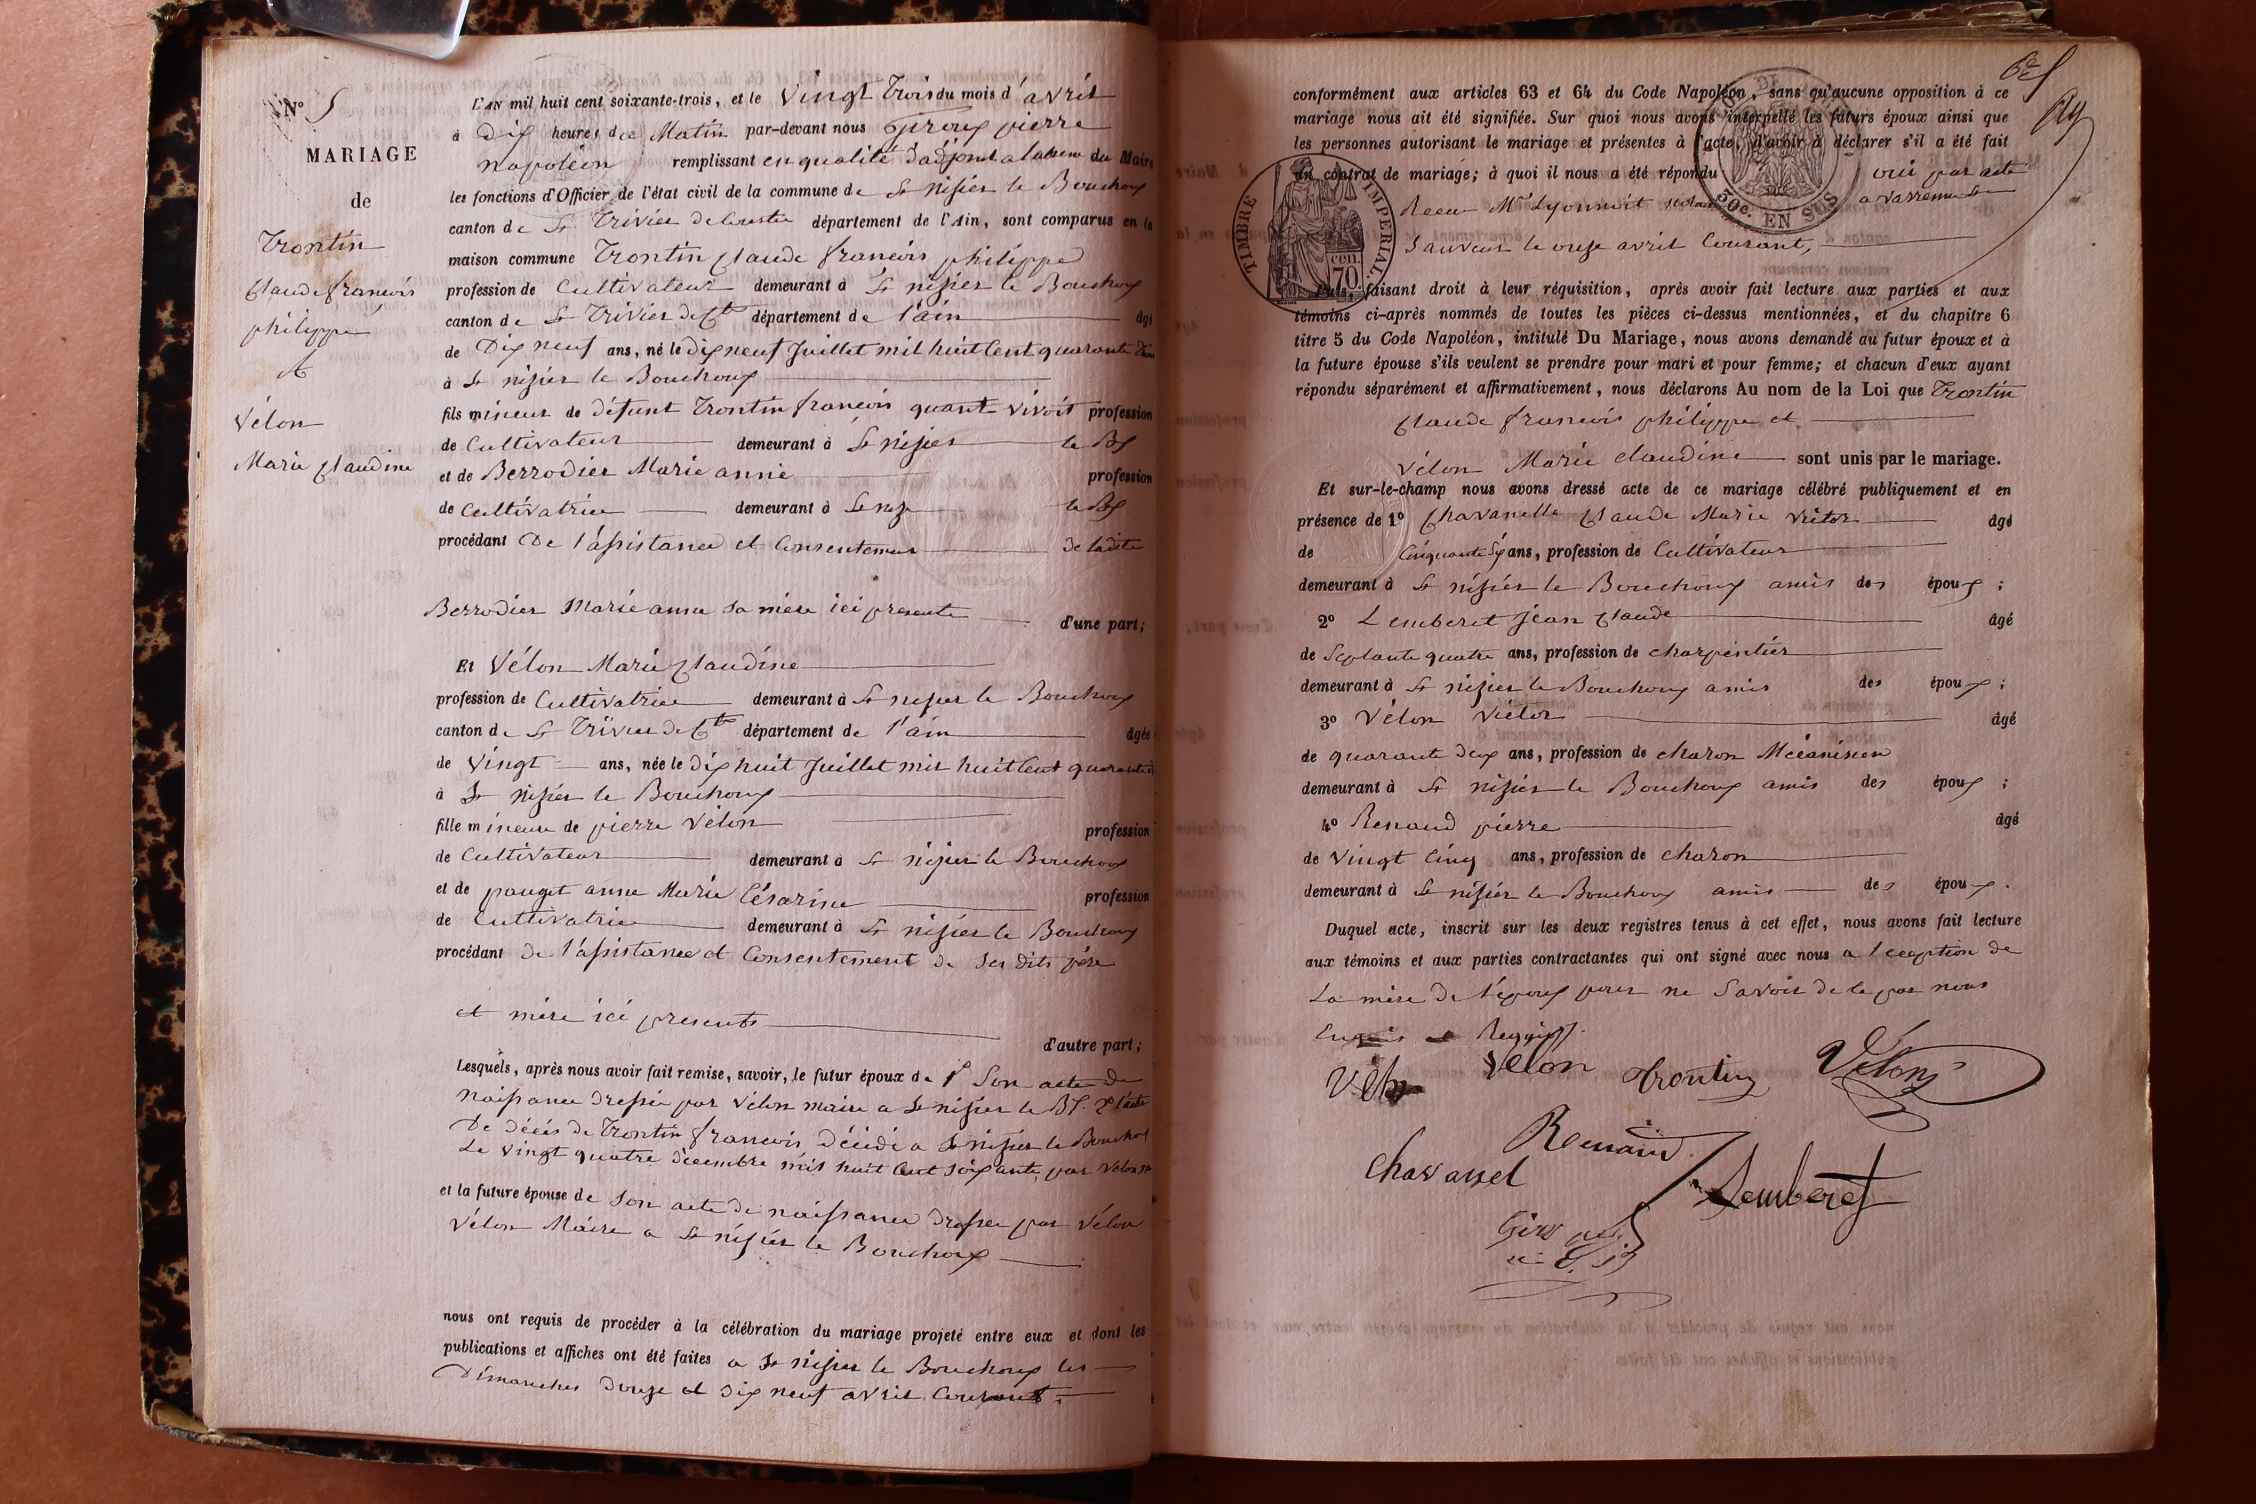 N° 5
MARIAGE
de
Trontin
Claude françois
philippe
et
Vélon
Marie Claudine
L'AN mil huit cent soixante-trois, et le Vingt Trois du mois d'avril
à Dix heures de Matin par-devant nous Giroux pierre
Napoléon remplissant en qualité d'adjoint du Maire
les fonctions d'Officier de l'état civil de la commune de St nisier le Bouchoux
canton de St Trivier de Courtes département de l'Ain, sont comparus en la
maison commune Trontin Claude françois philippe
profession de Cultivateur demeurant à St nisier le Bouchoux
canton de St Trivier de Ctes département de l'ain âgé
de Dix neuf ans, né le dix neuf Juillet mil huit Cent quarante
à St nisier le Bouchoux
fils mineur de défunt Trontin françois quant vivoit profession
de Cultivateur demeurant à St nisier le Bx
et de Berrodier Marie anne profession
de Cultivatrice demeurant à St nizr le Bx
procédant De l'assistance et Consentement de ladite
Berrodier Marie anne sa mère ici presente d'une part;
Et Vélon Marie Claudine
profession de Cultivatrice demeurant à St nisier le Bouchoux
canton de St Trivier de Ctes département de l'ain âgée
de Vingt ans, née le dix huit Juillet mil huit Cent quarante
à St nisier le Bouchoux
fille mineure de pierre Vélon profession
de Cultivateur demeurant à St nisier le Bouchoux
et de pauget anne Marie Césarine profession
de Cultivatrice demeurant à St nisier le Bouchoux
procédant de l'assistance et Consentement de ses dits père
et mère ici presents
d'autre part;
Lesquels, après nous avoir fait remise, savoir, le futur époux de 1° Son acte de
naissance dressé par Vélon maire a St nisier le Bx. 2° l'acte
De décès de Trontin françois décédé a St nisier le Bouchoux
Le Vingt quatre décembre mil huit Cent soixante, par Vélon
et la future épouse de Son acte de naissance dressé par Vélon
Vélon Maire a St nisier le Bouchoux
nous ont requis de procéder à la célébration du mariage projeté entre eux et dont les
publications et affiches ont été faites a St nisier le Bouchoux les
Dimanches douze et dix neuf avril Courant.
conformément aux articles 63 et 64 du Code Napoléon, sans qu'aucune opposition à ce
mariage nous ait été signifiée. Sur quoi nous avons interpellé les futurs époux ainsi que
les personnes autorisant le mariage et présentes à l'acte, d'avoir à déclarer s'il a été fait
un contrat de mariage; à quoi il nous a été répondu oui par acte
Recu Me Lyonnet notaire a Varrenne St
Sauveur le onze avril Courant,
TIMBRE IMPERIAL
70 cen.
50c. EN SUS
Puis, faisant droit à leur réquisition, après avoir fait lecture aux parties et aux
témoins ci-après nommés de toutes les pièces ci-dessus mentionnées, et du chapitre 6
titre 5 du Code Napoléon, intitulé Du Mariage, nous avons demandé au futur époux et à
la future épouse s'ils veulent se prendre pour mari et pour femme; et chacun d'eux ayant
répondu séparément et affirmativement, nous déclarons Au nom de la Loi que Trontin
Claude françois philippe et
Vélon Marie Claudine sont unis par le mariage.
Et sur-le-champ nous avons dressé acte de ce mariage célébré publiquement et en
présence de 1° Chavanelle Claude Marie Victor âgé
de Cinquante Six ans, profession de Cultivateur
demeurant à St nisier le Bouchoux amis des époux;
2° Lemberet Jean Claude âgé
de Septante quatre ans, profession de charpentier
demeurant à St nisier le Bouchoux amis des époux;
3° Vélon Victor âgé
de quarante deux ans, profession de charon Mécanicien
demeurant à St nisier le Bouchoux amis des époux;
4° Renaud pierre âgé
de Vingt Cinq ans, profession de charon
demeurant à St nisier le Bouchoux amis des époux.
Duquel acte, inscrit sur les deux registres tenus à cet effet, nous avons fait lecture
aux témoins et aux parties contractantes qui ont signé avec nous a l'ception de
La mère De l'époux pour ne Savoir de ce par nous
Enquis et Requis.
Vélon Trontin Vélon
Renaud
Chavanel Lemberet